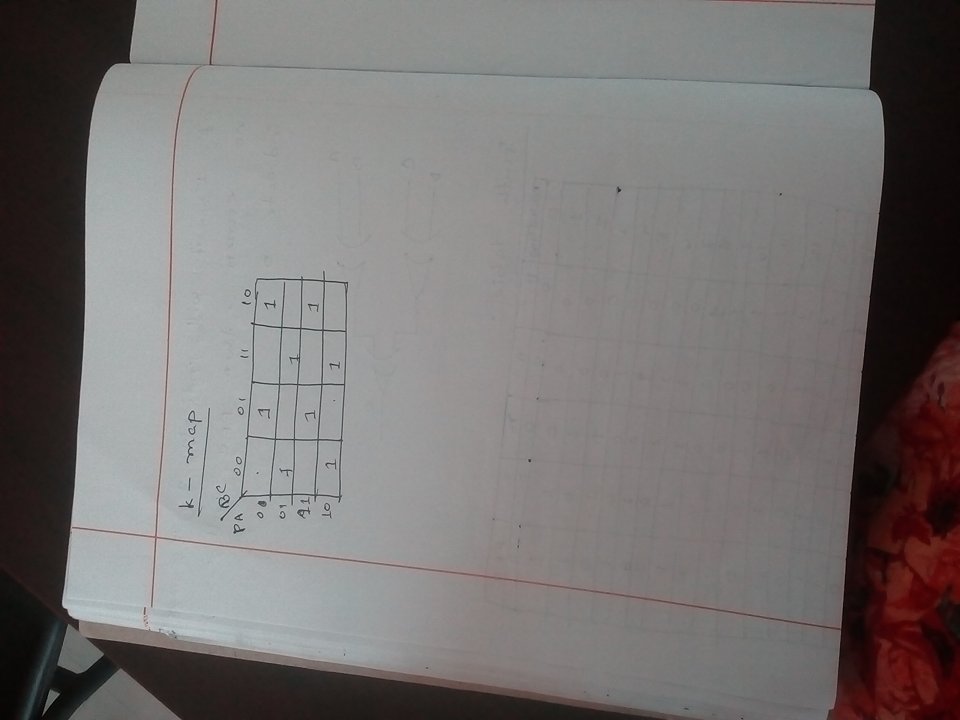 K - map
PA BC 00 01 11 10
00 1 1
01 1 1
11 1 1
10 1 1